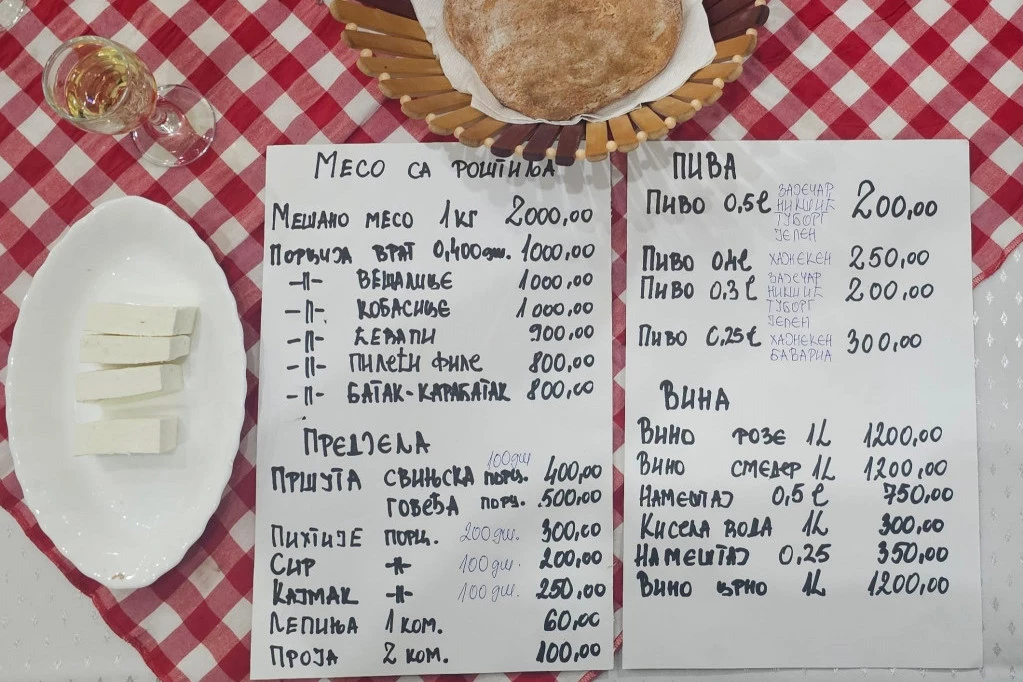 Месо са роштиља
Мешано месо 1 кг 2000,00
Порција врат 0,400 gm. 1000,00
-॥- вешалице 1000,00
-॥- кобасице 1000,00
-॥- ћевапи 900,00
-॥- пилећи филе 800,00
-॥- батак-карабатак 800,00
Предјела
100 gm
Пршута свињска порц. 400,00
говеђа порц. 500,00
Пихтије порц. 200 gm. 300,00
Сир -॥- 100 gm. 200,00
Кајмак -॥- 100 gm. 250,00
Лепиња 1 ком. 60,00
Проја 2 ком. 100,00
ПИВА
Пиво 0,5ℓ зајечар никшић туборг јелен 200,00
Пиво 0,4ℓ хајнекен 250,00
Пиво 0,3ℓ зајечар никшић туборг јелен 200,00
Пиво 0,25ℓ хајнекен бавариа 300,00
ВИНА
Вино розе 1L 1200,00
Вино смедер 1L 1200,00
Намештај 0,5ℓ 750,00
Кисела вода 1L 300,00
Намештај 0,25 350,00
Вино црно 1L 1200,00